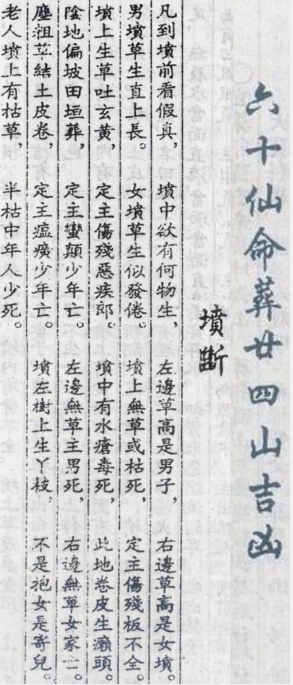 六十仙命葬廿四山吉凶
墳斷
凡到墳前看假真，墳中欲有何物生，左邊草高是男子，右邊草高是女墳。
男墳草生直上長。女墳草生似發倦。墳上無草或枯死，定主傷殘板不全。
墳上生草吐玄黃，定主傷殘惡疾郎。墳中有水瘡毒死，此地卷皮生癩頭。
陰地偏坡田垣葬，定主蠻顛少年亡。左邊無草主男死，右邊無草女家亡。
塵結土皮卷，定主瘟癀少年亡。墳左樹上生丫枝，不是抱女是寄兒。
老人墳上有枯草，半枯中年人少死。